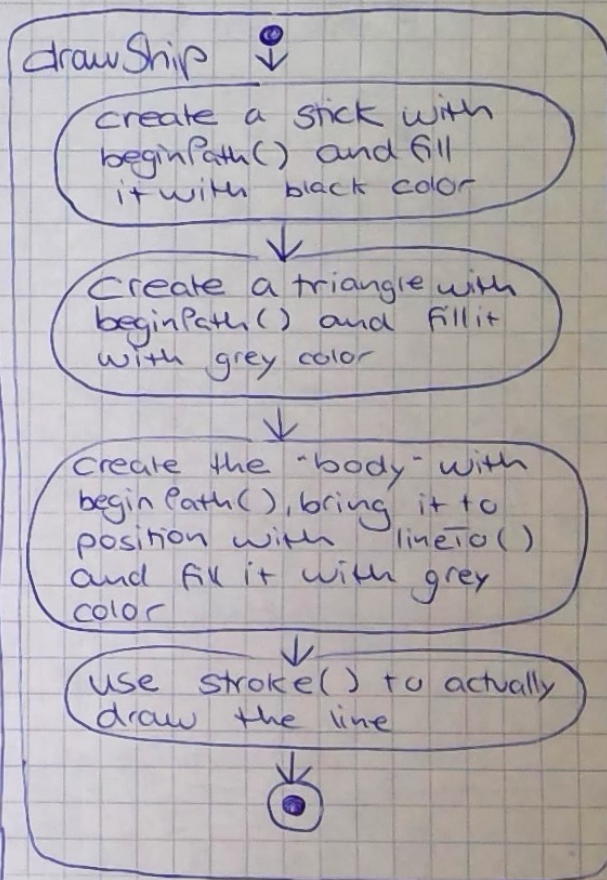 drawShip
create a stick with
beginPath() and fill
it with black color
Create a triangle with
beginPath() and fill it
with grey color
create the "body" with
beginPath(), bring it to
position with lineTo()
and fill it with grey
color
use stroke() to actually
draw the line